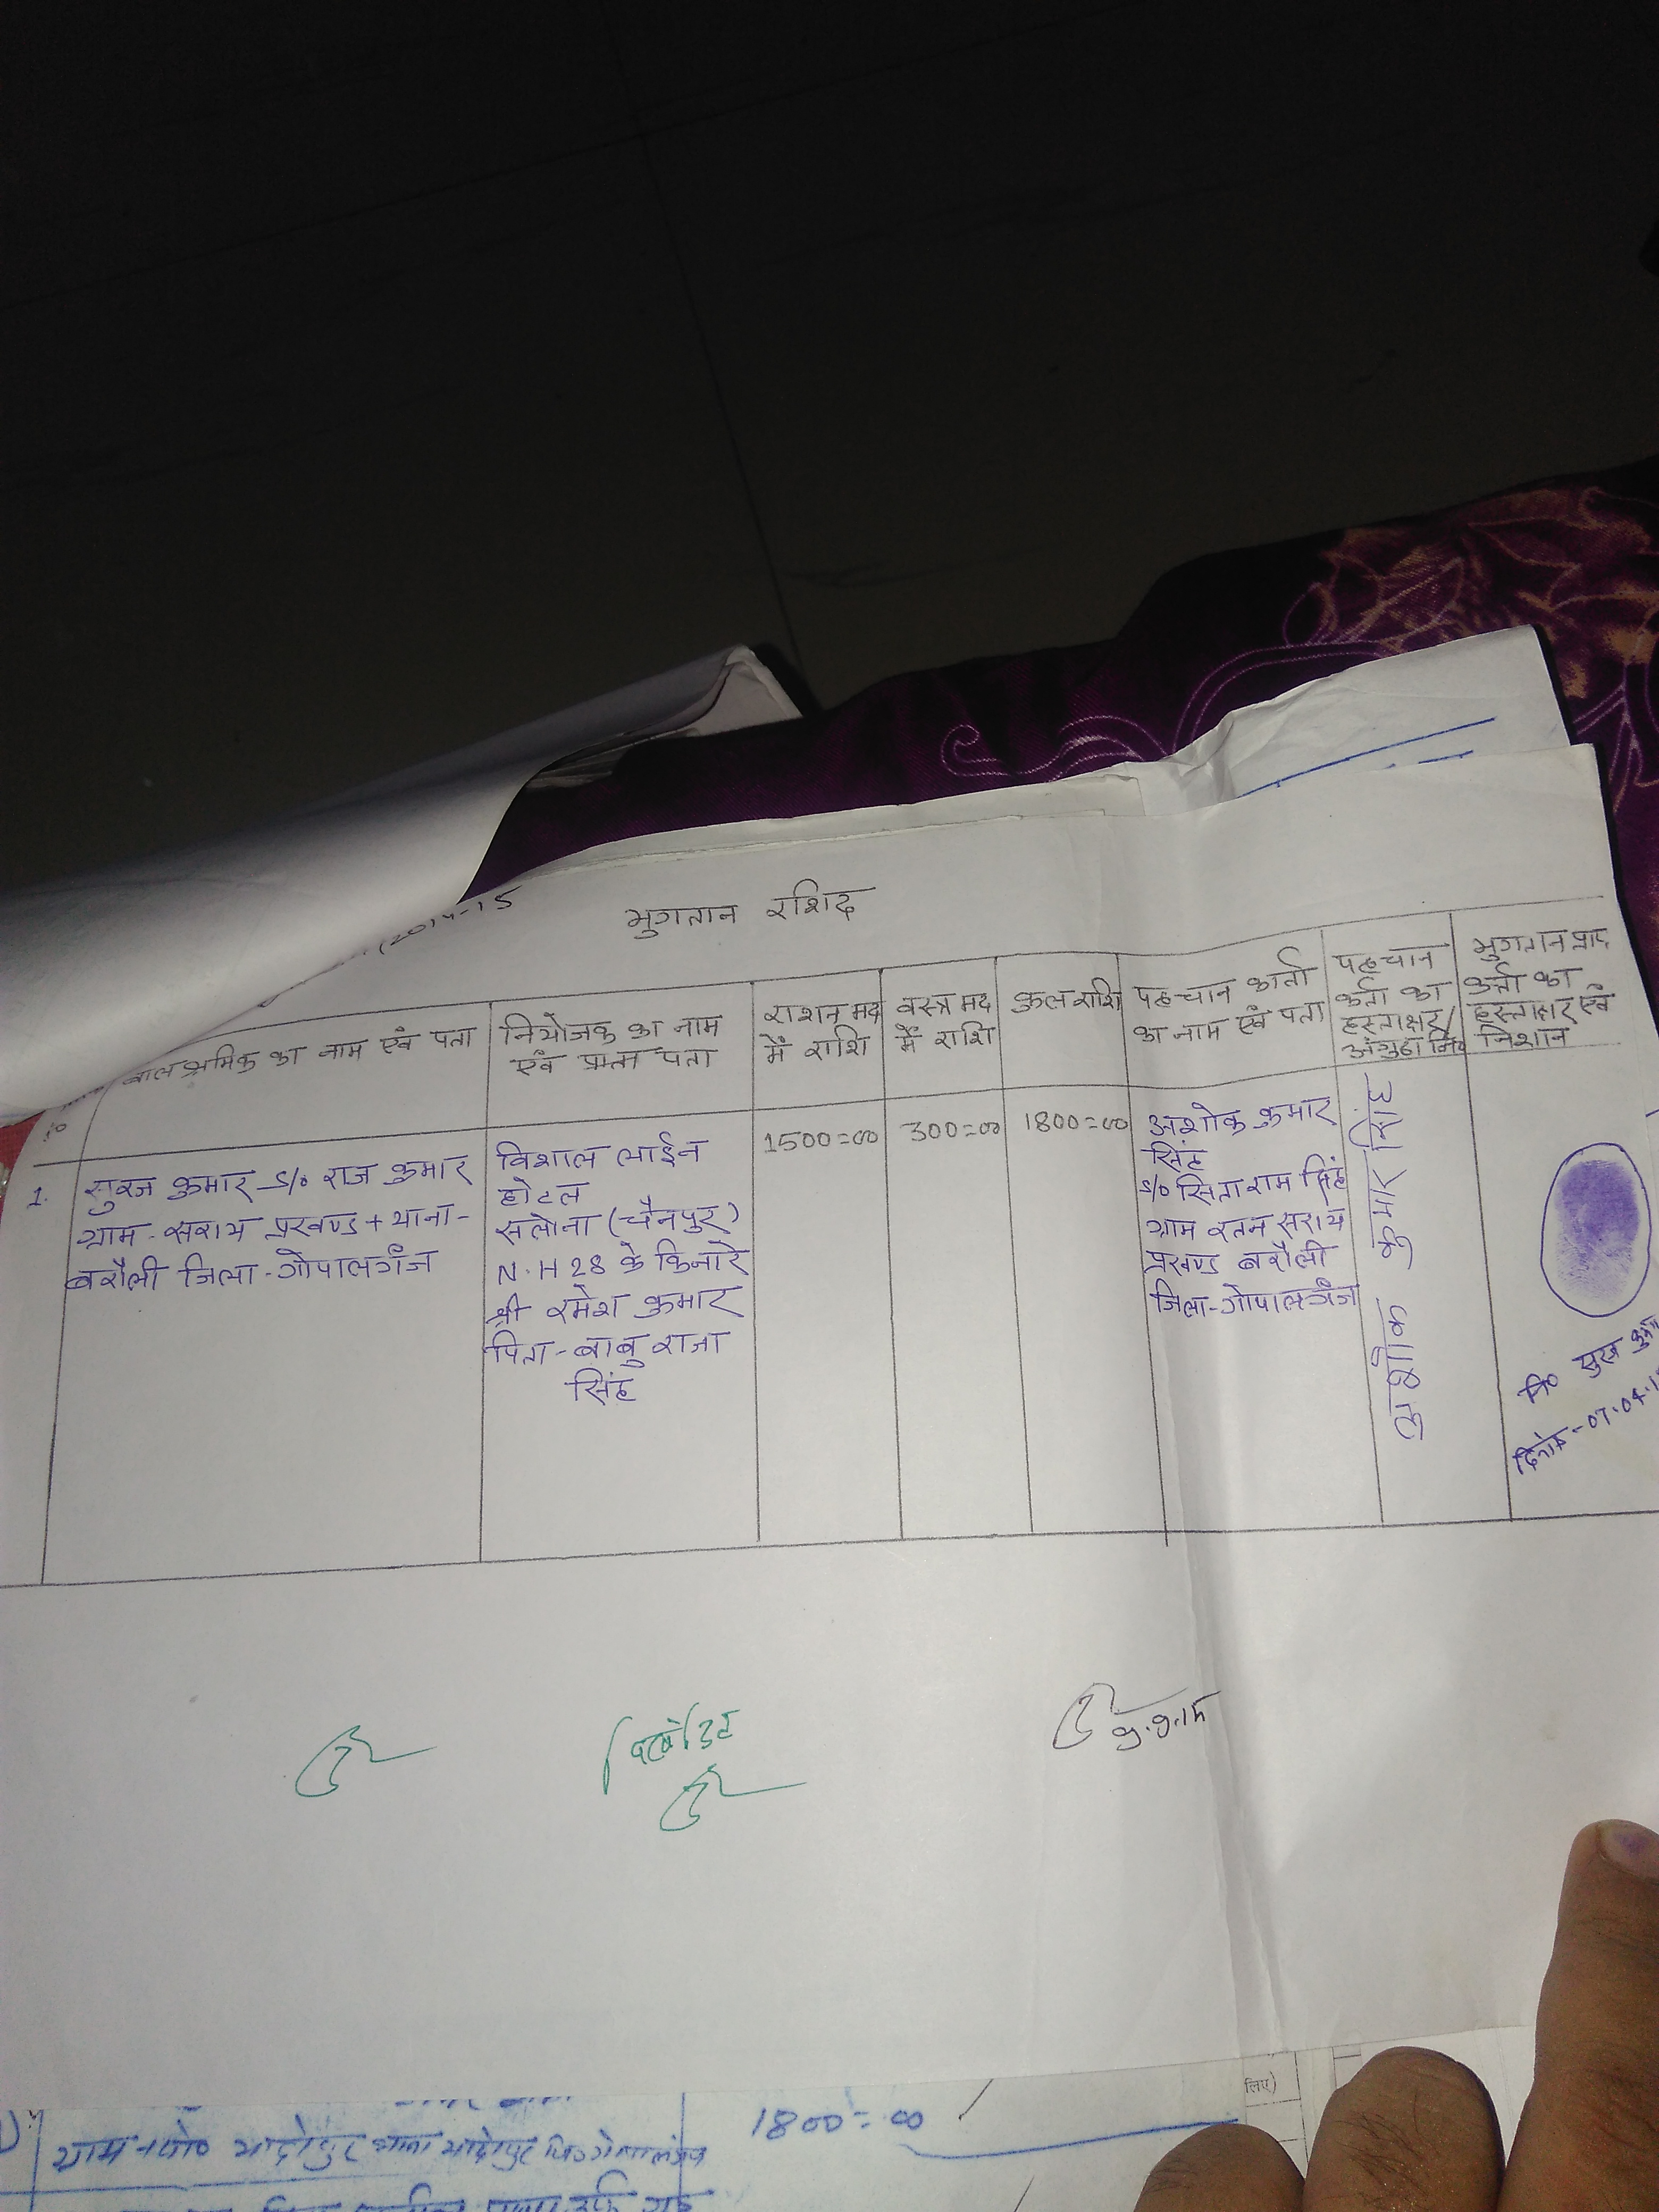 (2014-15
भुगतान रशिद
बाल श्रमिक का नाम एवं पता
नियोजक का नाम
एवं पता
राशन मद
में राशि
वस्त्र मद
में राशि
कुल राशि
पहचान कर्ता
का नाम एवं पता
पहचान
कर्ता का
हस्ताक्षर/
अंगुठा
भुगतान प्राप्त
कर्ता का
हस्ताक्षर एवं
निशान
1.
सुरज कुमार S/o राज कुमार
ग्राम - सराय प्रखण्ड + थाना -
बरौली जिला - गोपालगंज
विशाल लाईन
होटल
सलोना (चैनपुर)
N.H 28 के किनारे
श्री रमेश कुमार
पिता - बाबु राजा
सिंह
1500=00
300=00
1800=00
अशोक कुमार
सिंह
S/o सिताराम सिंह
ग्राम रतन सराय
प्रखण्ड बरौली
जिला - गोपालगंज
अशोक कुमार सिंह
नि० सुरज कुमार
दिनांक - 07.04.1
लिए)
1800=00